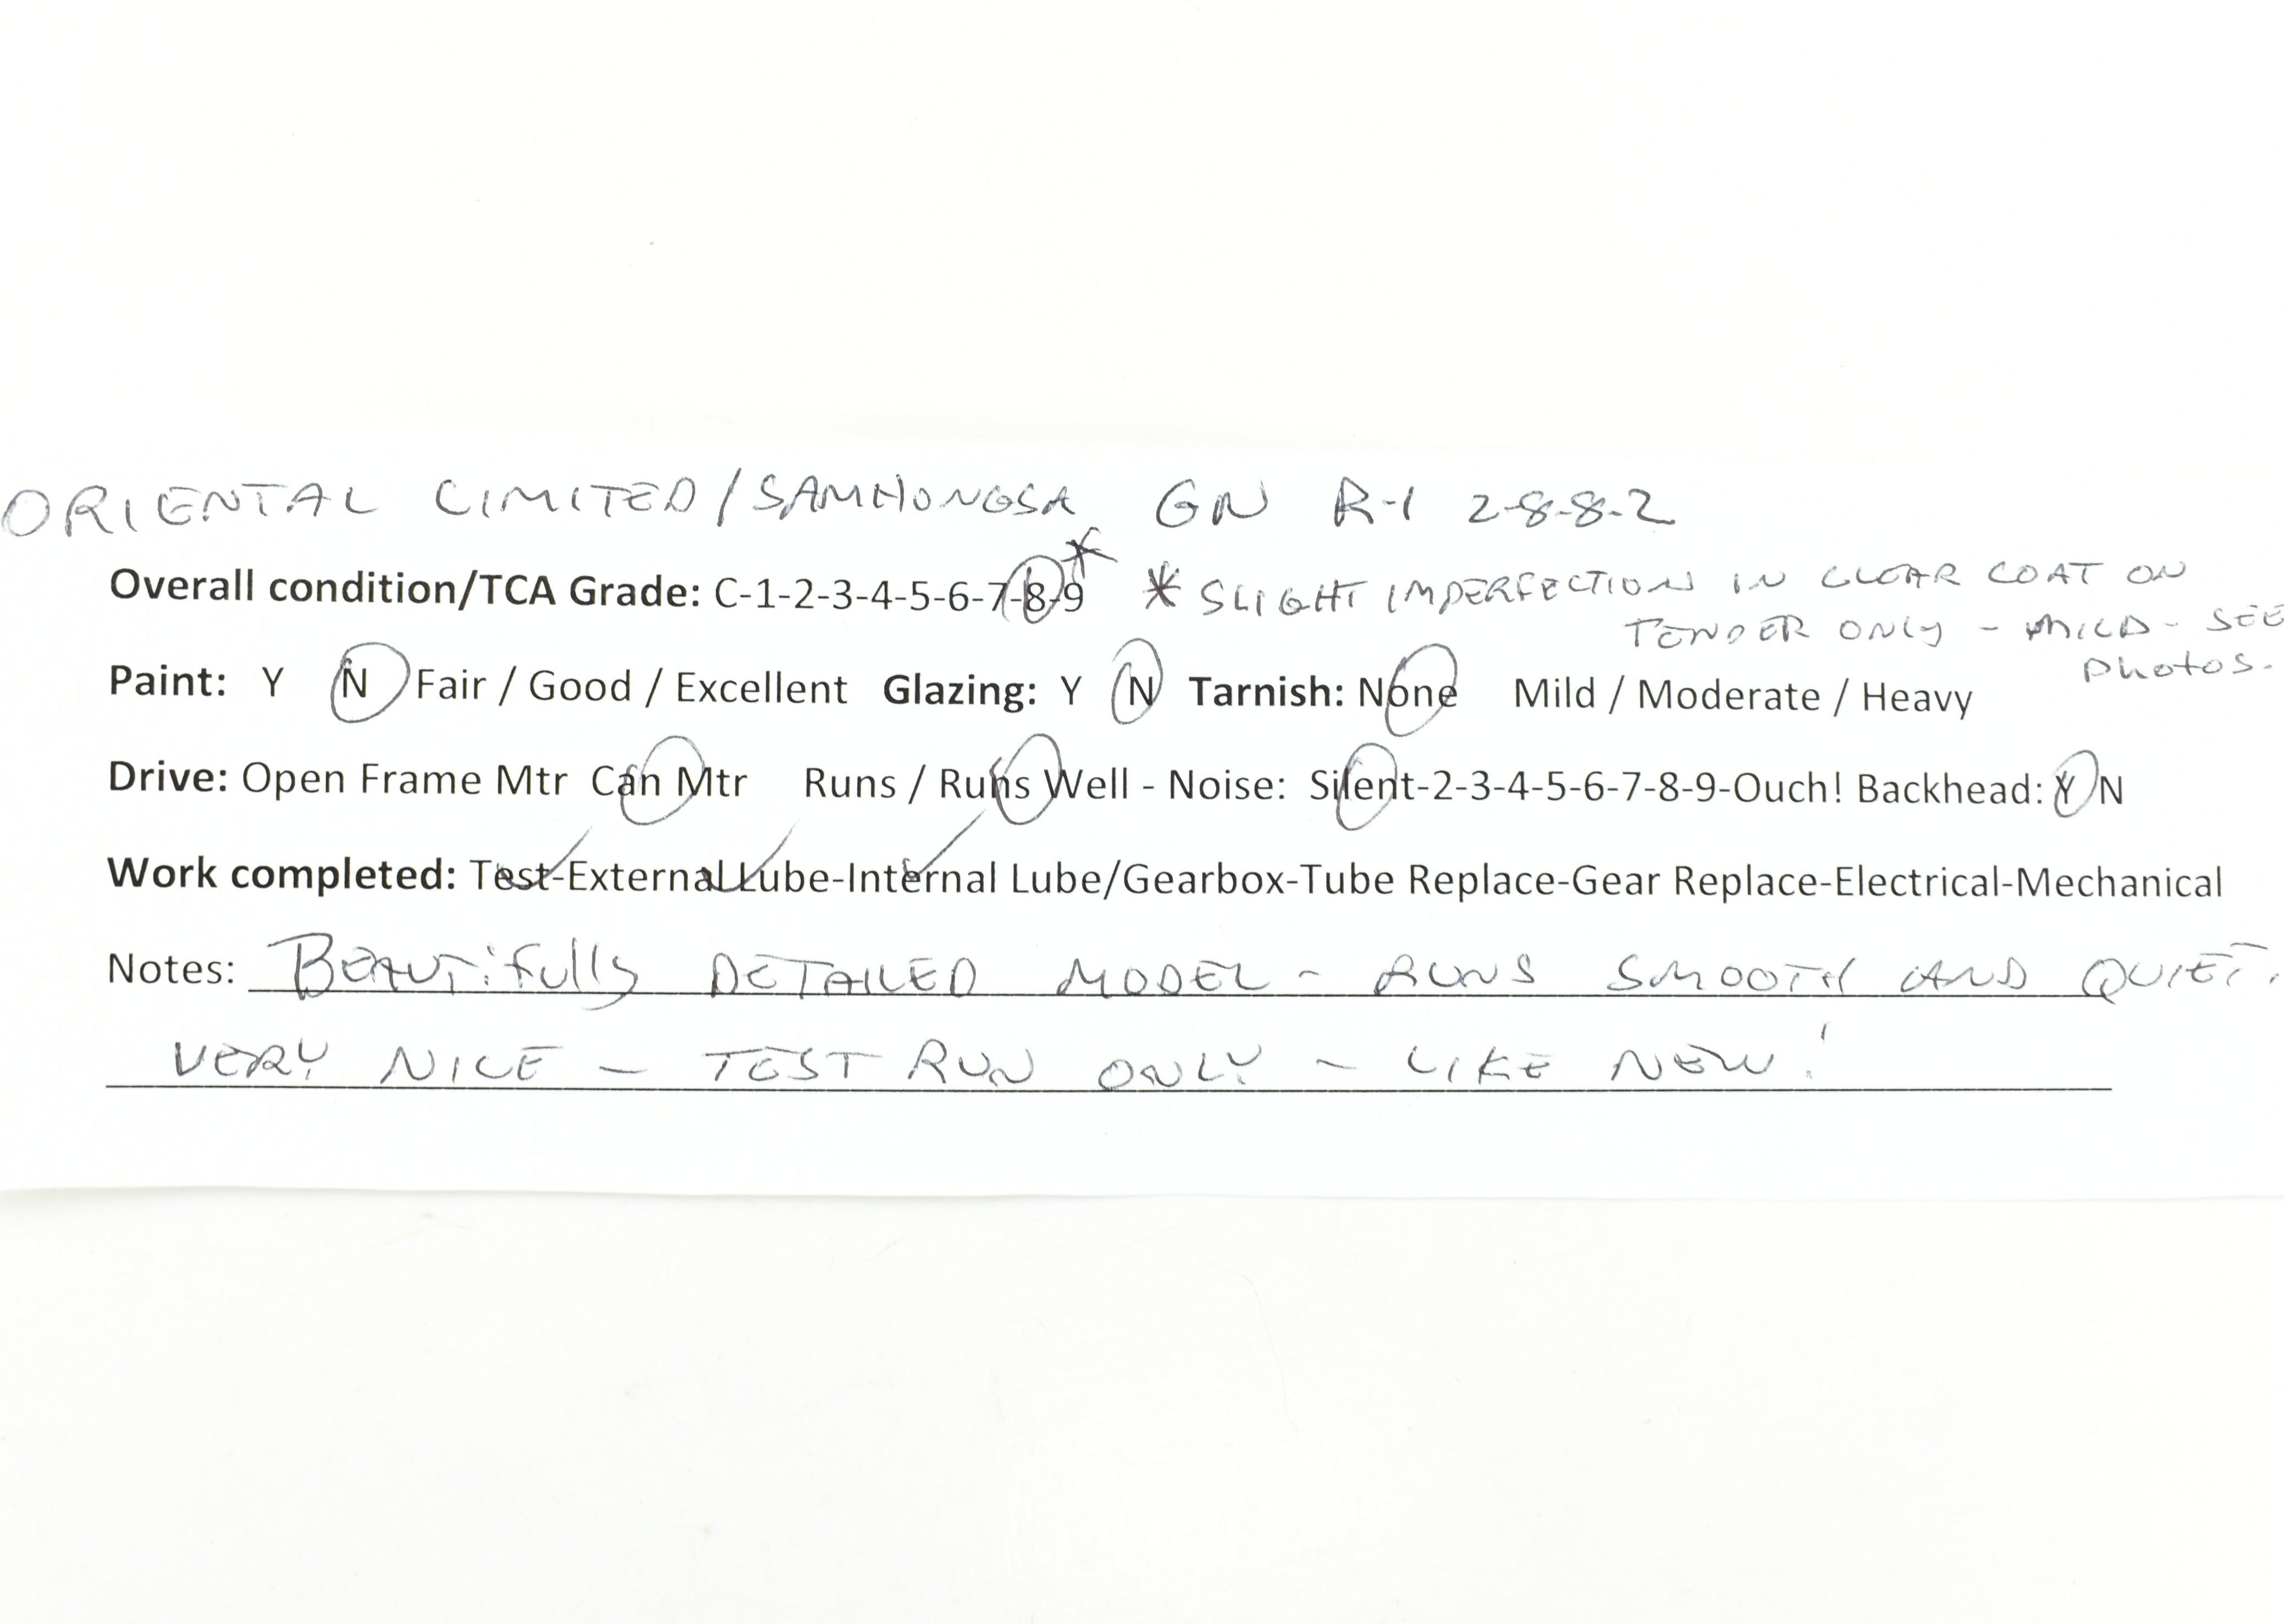 ORIENTAL LIMITED/SAMHONGSA GN R-1 2-8-8-2
Overall condition/TCA Grade: C-1-2-3-4-5-6-7-8-9* * SLIGHT IMPERFECTION IN CLEAR COAT ON
TENDER ONLY - MILD - SEE
photos.
Paint: Y N Fair / Good / Excellent Glazing: Y N Tarnish: None Mild / Moderate / Heavy
Drive: Open Frame Mtr Can Mtr Runs / Runs Well - Noise: Silent-2-3-4-5-6-7-8-9-Ouch! Backhead: Y N
Work completed: Test-External Lube-Internal Lube/Gearbox-Tube Replace-Gear Replace-Electrical-Mechanical
Notes: BEAUTifully DETAILED MODEL - RUNS SMOOTH AND QUIET.
VERY NICE - TEST RUN ONLY - LIKE NEW!